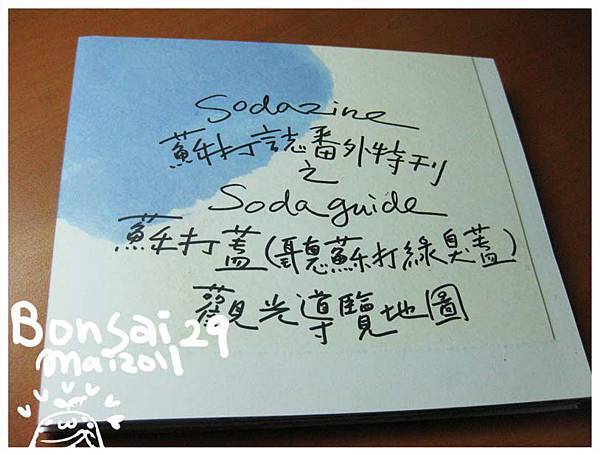 Sodazine
蘇打誌番外特刊
之
Sodaguide
蘇打蓋(聽蘇打綠臭蓋)
觀光導覽地圖
Bonsai29
mai2011